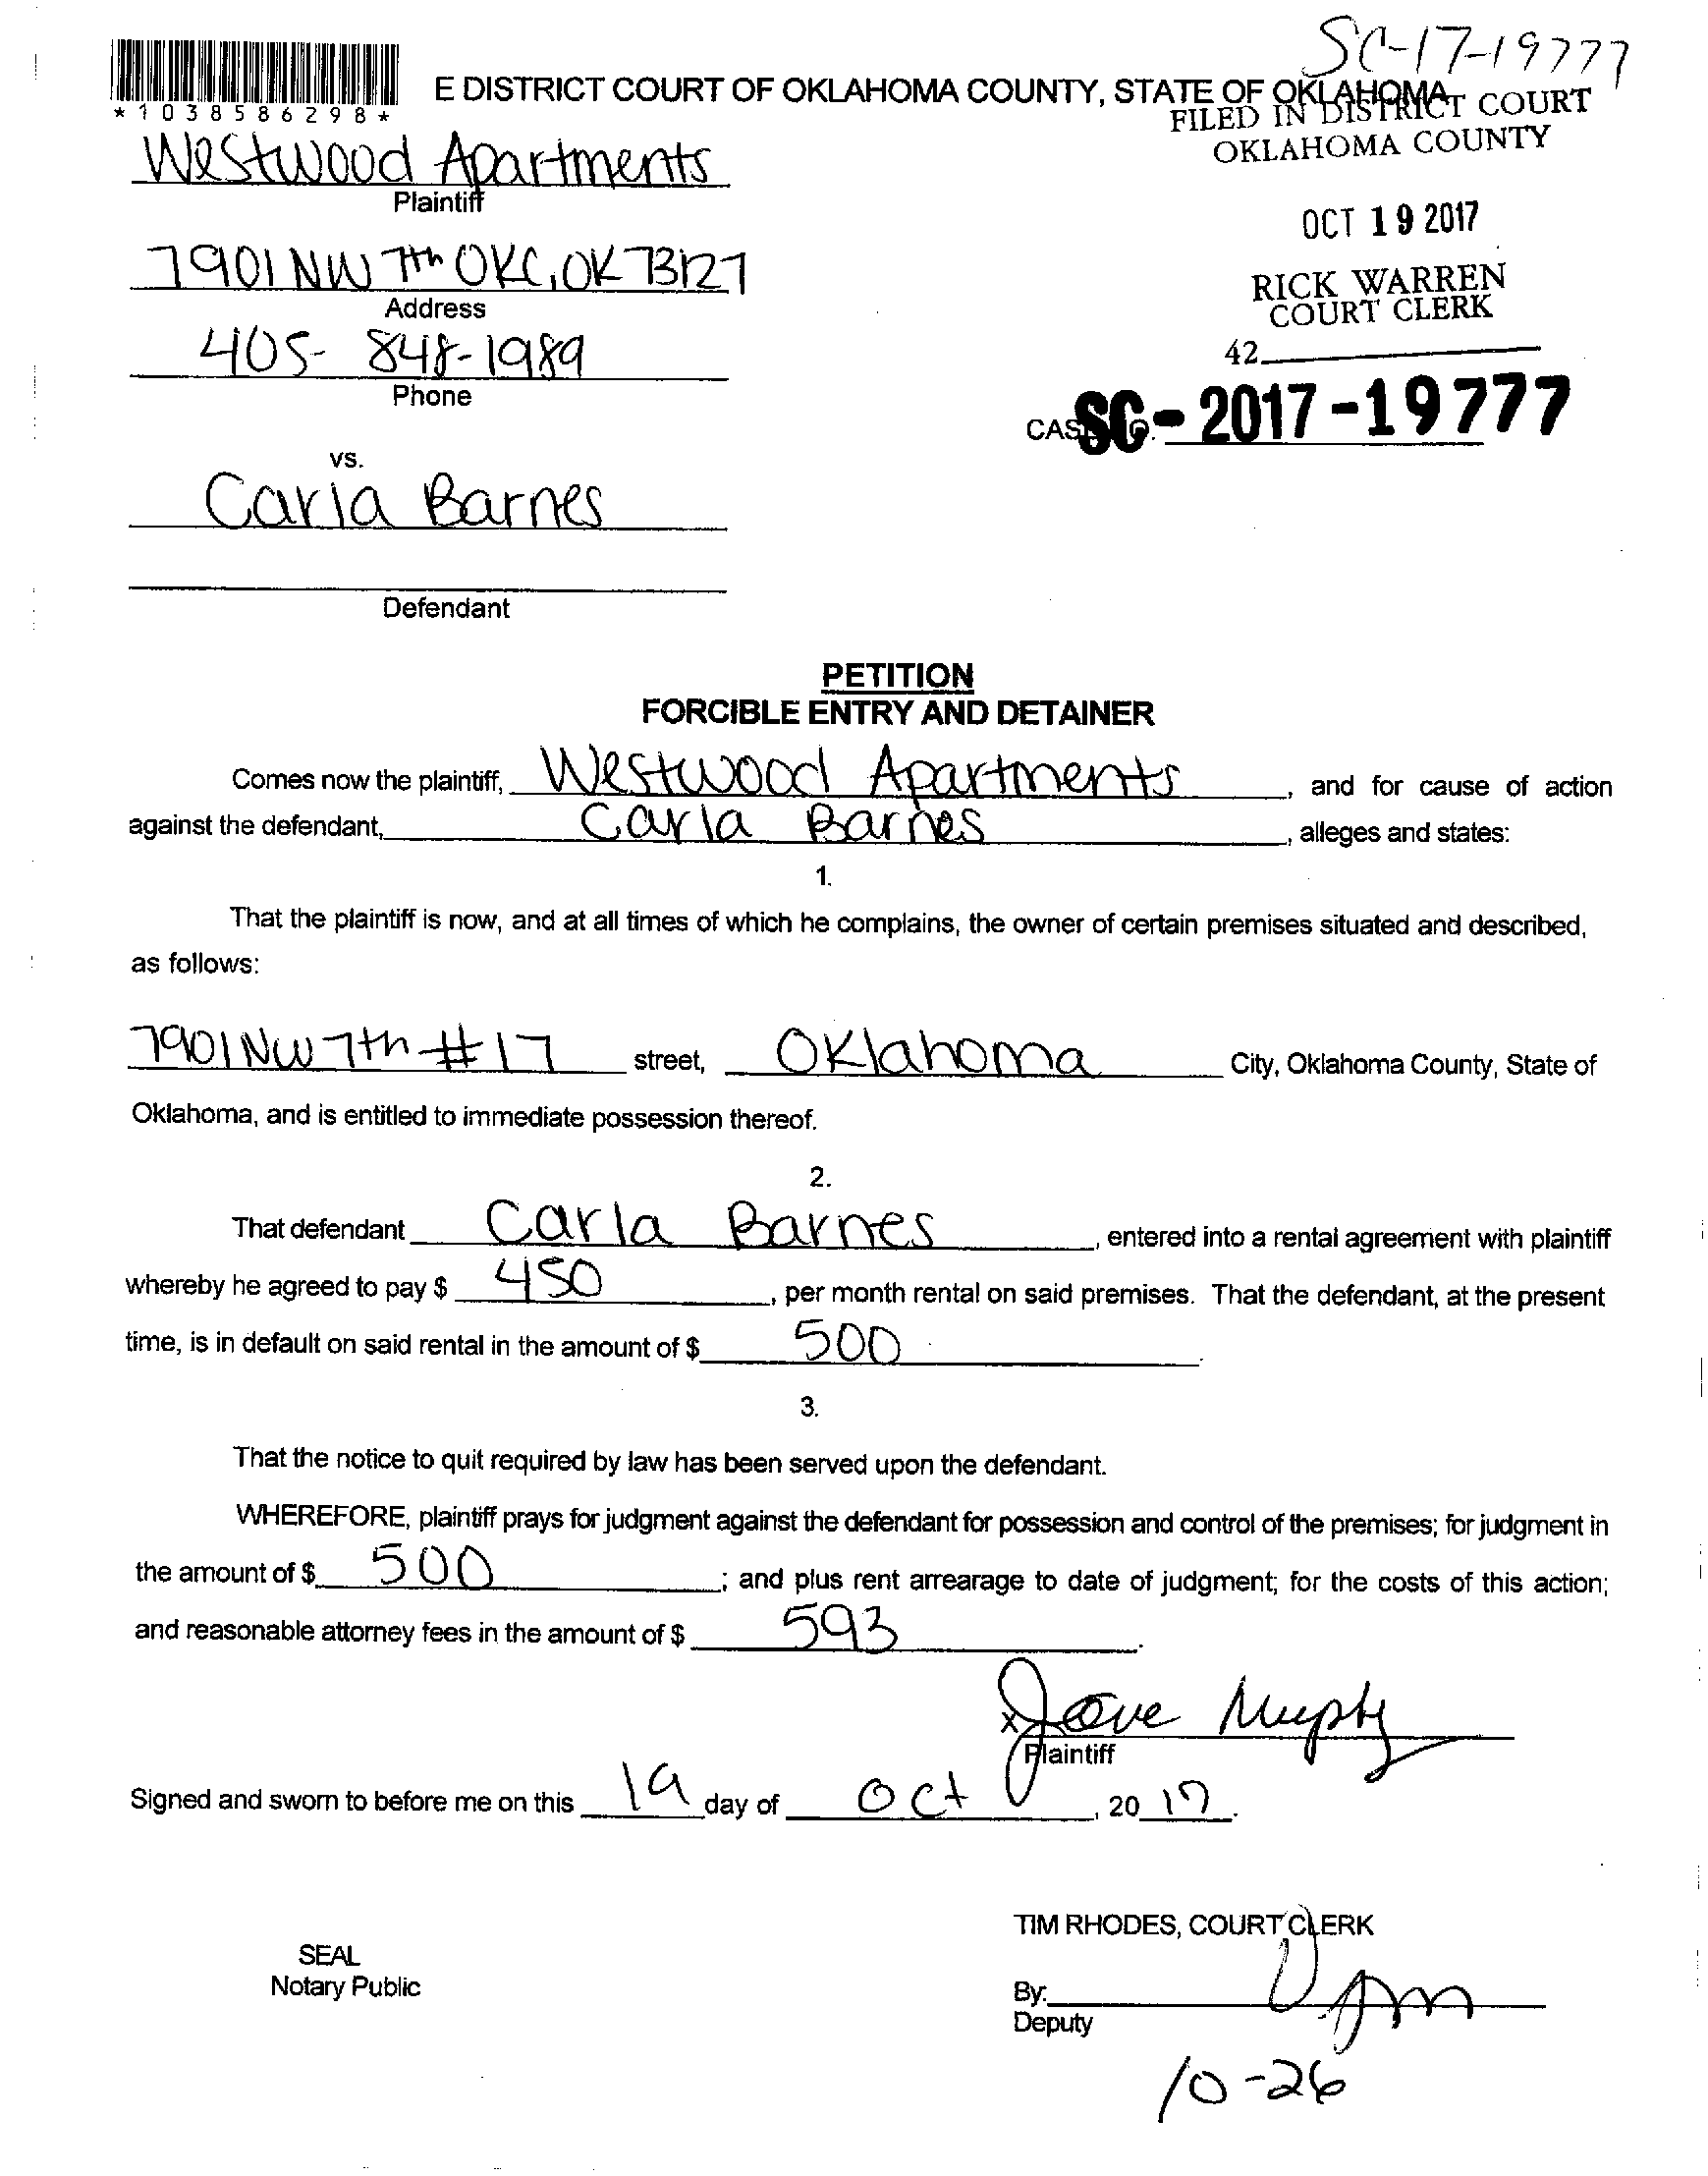 SC-17-19777
*1038586298*
E DISTRICT COURT OF OKLAHOMA COUNTY, STATE OF OKLAHOMA
FILED IN DISTRICT COURT
OKLAHOMA COUNTY
Westwood Apartments
Plaintiff
OCT 19 2017
7901 NW 7th OKC, OK 73127
Address
RICK WARREN
COURT CLERK
405-848-1989
Phone
42
CASE NO. SC-2017-19777
vs.
Carla Barnes
Defendant
PETITION
FORCIBLE ENTRY AND DETAINER
Comes now the plaintiff, Westwood Apartments, and for cause of action
against the defendant, Carla Barnes, alleges and states:
1.
That the plaintiff is now, and at all times of which he complains, the owner of certain premises situated and described,
as follows:
7901 NW 7th #17 street, Oklahoma City, Oklahoma County, State of
Oklahoma, and is entitled to immediate possession thereof.
2.
That defendant Carla Barnes, entered into a rental agreement with plaintiff
whereby he agreed to pay $ 450, per month rental on said premises. That the defendant, at the present
time, is in default on said rental in the amount of $ 500.
3.
That the notice to quit required by law has been served upon the defendant.
WHEREFORE, plaintiff prays for judgment against the defendant for possession and control of the premises; for judgment in
the amount of $ 500; and plus rent arrearage to date of judgment; for the costs of this action;
and reasonable attorney fees in the amount of $ 593.
x
Plaintiff
Signed and sworn to before me on this 19 day of Oct, 2017.
TIM RHODES, COURT CLERK
SEAL
Notary Public
By:
Deputy
10-26